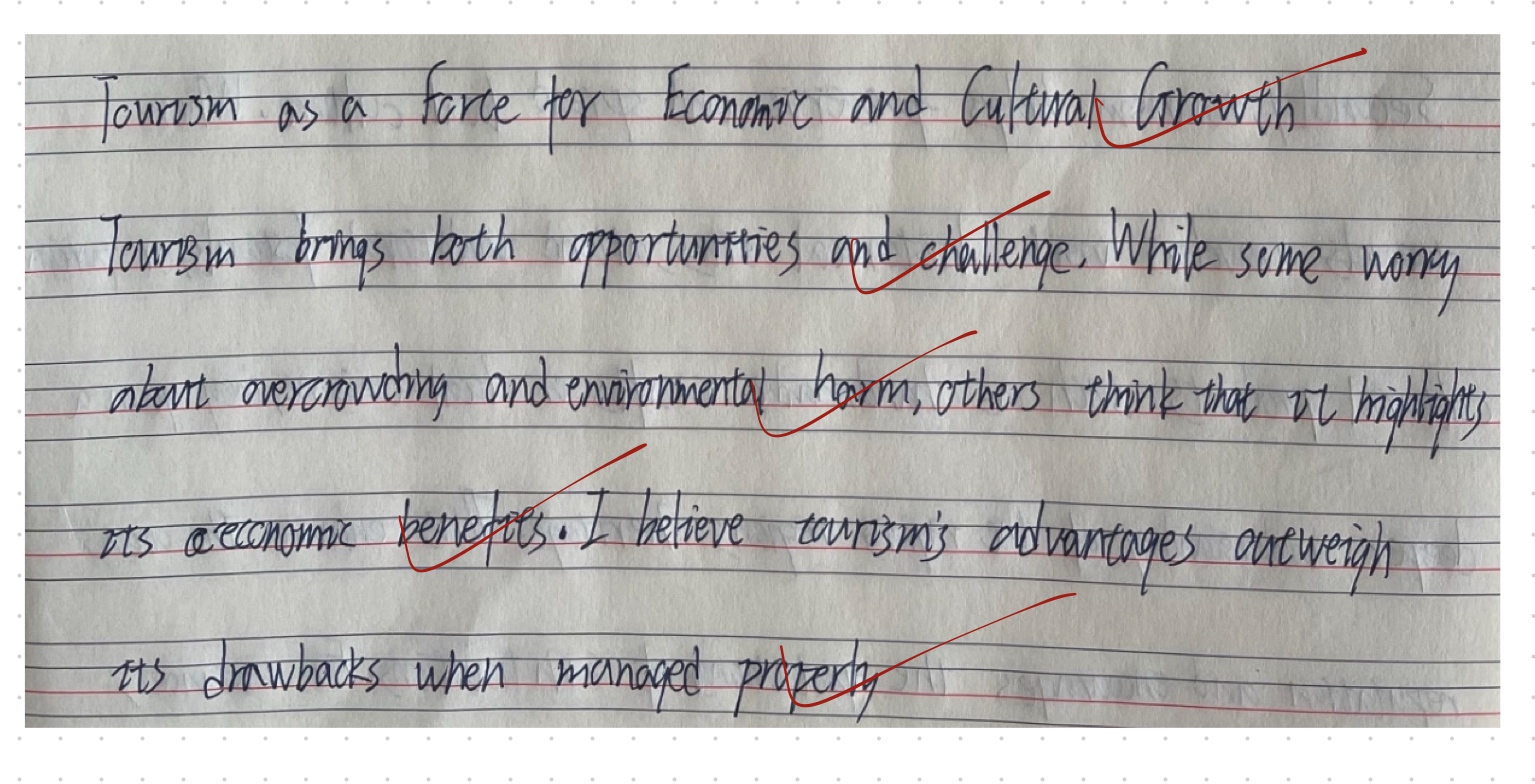 Tourism as a force for Economic and Cultural Growth
Tourism brings both opportunities and challenge. While some worry
about overcrowding and environmental harm, others think that it highlights
its economic benefits. I believe tourism's advantages outweigh
its drawbacks when managed properly